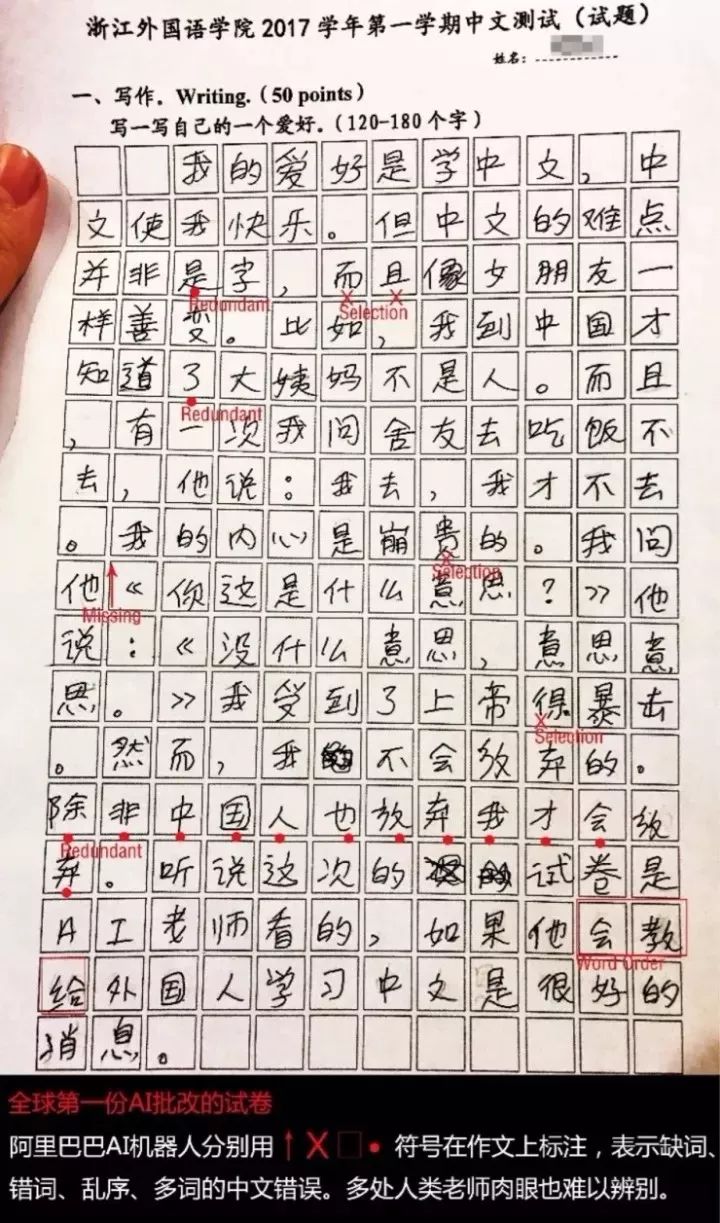 浙江外国语学院 2017 学年第一学期中文测试（试题）
姓名：
一、写作. Writing.（50 points）
写一写自己的一个爱好.（120-180 个字）
我的爱好是学中文，中
文使我快乐。但中文的难点
并非是字，而且像女朋友一
Redundant Selection
样善变。比如，我到中国才
知道了大姨妈不是人。而且
Redundant
，有一次我问舍友去吃饭不
去，他说：我去，我才不去
。我的内心是崩贵的。我问
Selection
他《你这是什么意思？》他
Missing
说：《没什么意思，意思意
思。》我受到了上帝得暴击
Selection
。然而，我不会放弃的。
除非中国人也放弃我才会放
Redundant
弃。听说这次的试卷是
AI老师看的，如果他会教
Word Order
给外国人学习中文是很好的
消息。
全球第一份AI批改的试卷
阿里巴巴AI机器人分别用↑X□●符号在作文上标注，表示缺词、
错词、乱序、多词的中文错误。多处人类老师肉眼也难以辨别。